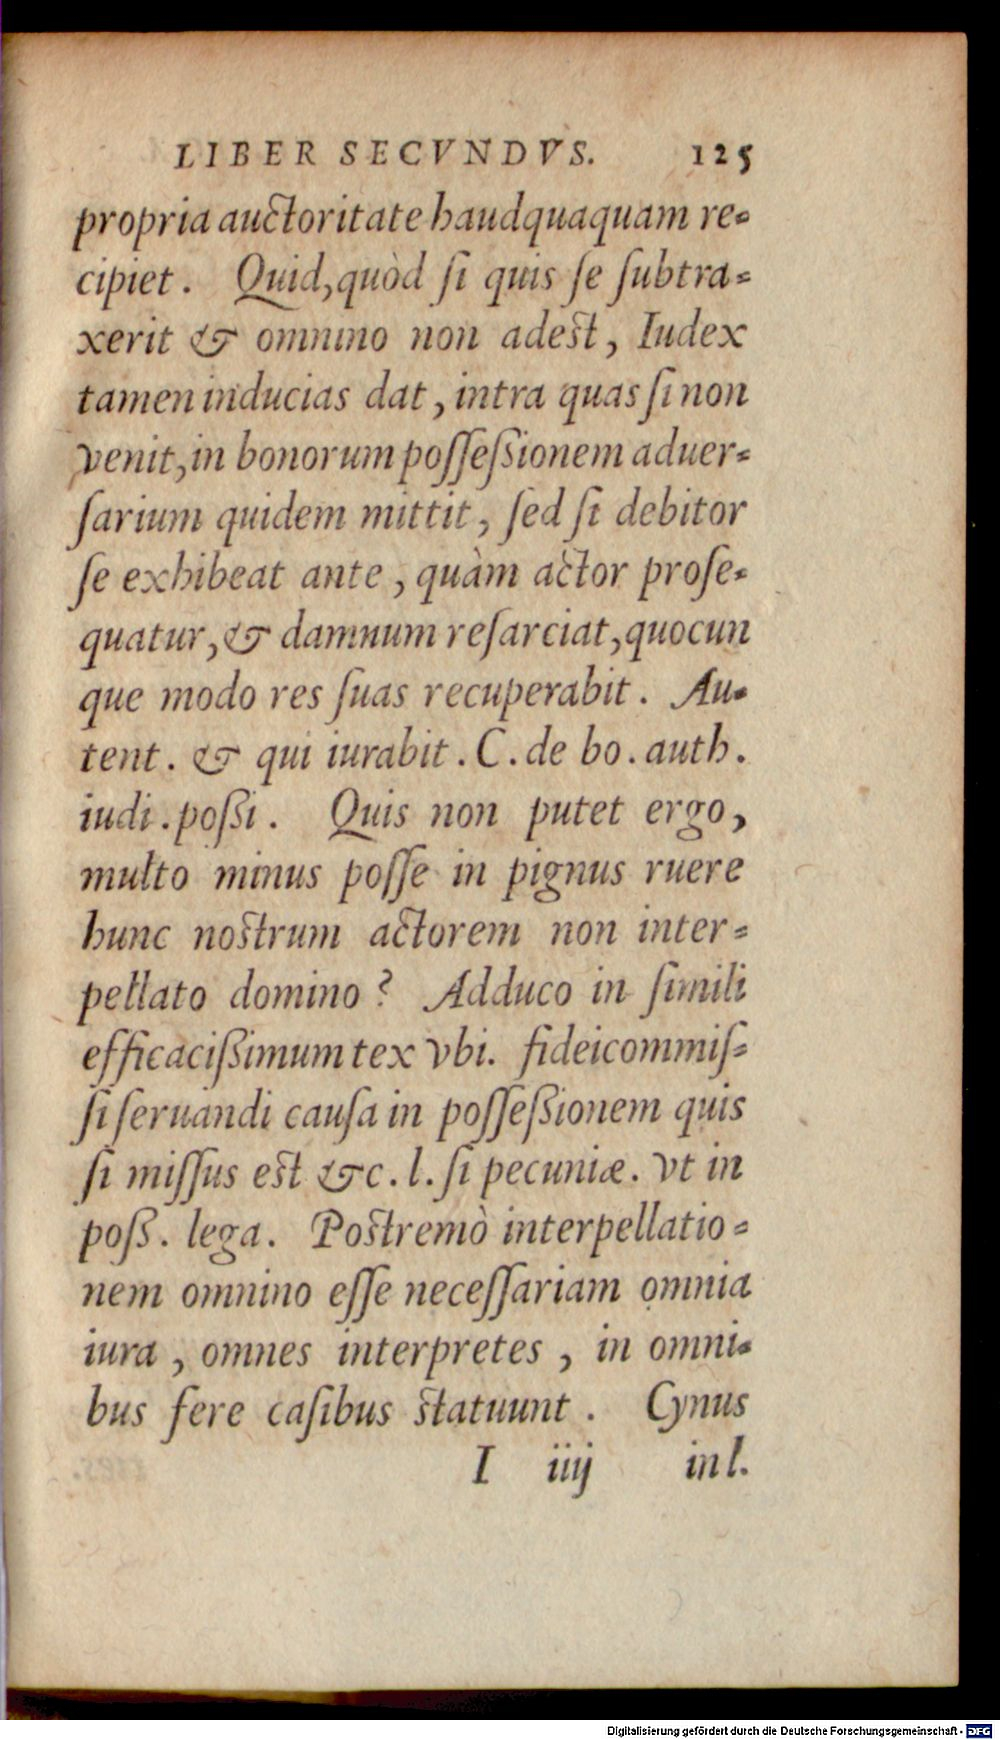 LIBER SECVNDVS. 125
propria auctoritate haudquaquam re-
cipiet. Quid, quòd ſi quis ſe ſubtra-
xerit & omnino non adest, Iudex
tamen inducias dat, intra quas ſi non
venit, in bonorum poſſeßionem aduer-
ſarium quidem mittit, ſed ſi debitor
ſe exhibeat ante, quàm actor proſe-
quatur, & damnum reſarciat, quocun
que modo res ſuas recuperabit. Au-
tent. & qui iurabit. C. de bo. auth.
iudi. poßi. Quis non putet ergo,
multo minus poſſe in pignus ruere
hunc nostrum actorem non inter-
pellato domino? Adduco in ſimili
efficacißimum tex vbi. fideicommiſ-
ſi ſeruandi cauſa in poſſeßionem quis
ſi miſſus est &c. l. ſi pecuniæ. vt in
poß. lega. Postremò interpellatio-
nem omnino eſſe neceſſariam omnia
iura, omnes interpretes, in omni-
bus fere caſibus statuunt. Cynus
I iiij in l.
Digitalisierung gefördert durch die Deutsche Forschungsgemeinschaft - DFG